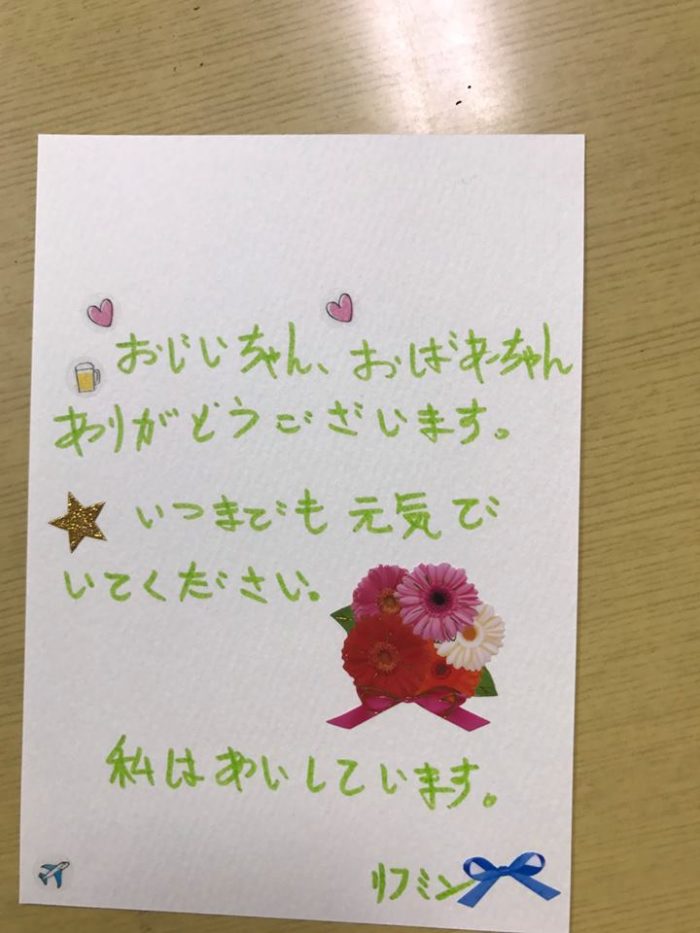 おじいちゃん、おばあちゃん
ありがどうございます。
いつまでも元気で
いてください。
私はあいしています。
リフミン